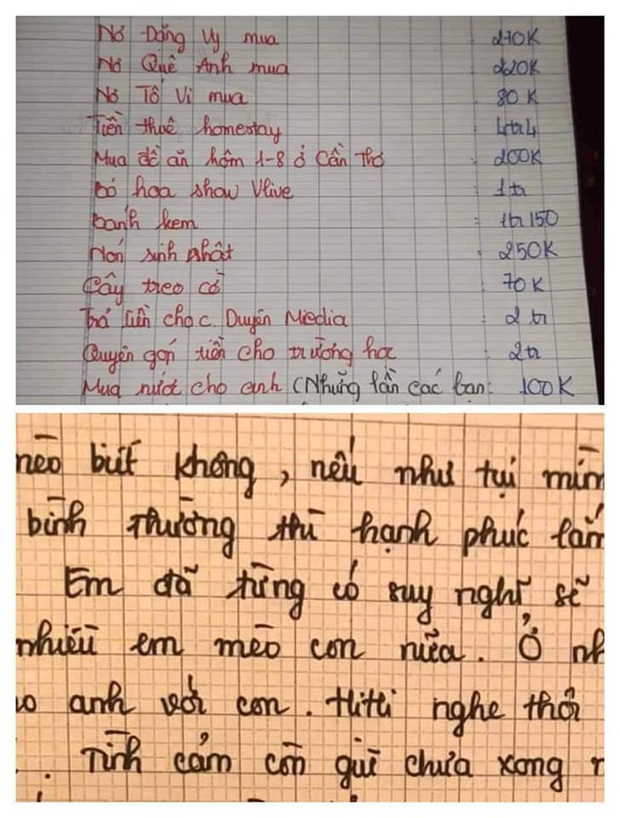 Nợ Đặng Vy mua : 210K
Nợ Quế Anh mua : 220K
Nợ Tố Vi mua : 80K
Tiền thuê homestay : 4tr4
Mua đồ ăn hôm 1-8 ở Cần Thơ : 200K
bó hoa show Vlive : 1tr
bánh kem : 1tr150
Nón sinh nhật : 250K
Cây treo cổ : 70K
Trả tiền cho c. Duyên Media : 2tr
Quyên góp tiền cho trường học : 2tr
Mua nước cho anh (Những lần các bạn : 100K
mèo biết không, nếu như tụi mìn
bình thường thì hạnh phúc lắm
Em đã từng có suy nghĩ sẽ
nhiều em mèo con nữa. Ở nh
anh với con. Hihi nghe thôi
. Tình cảm còn gửi chưa xong